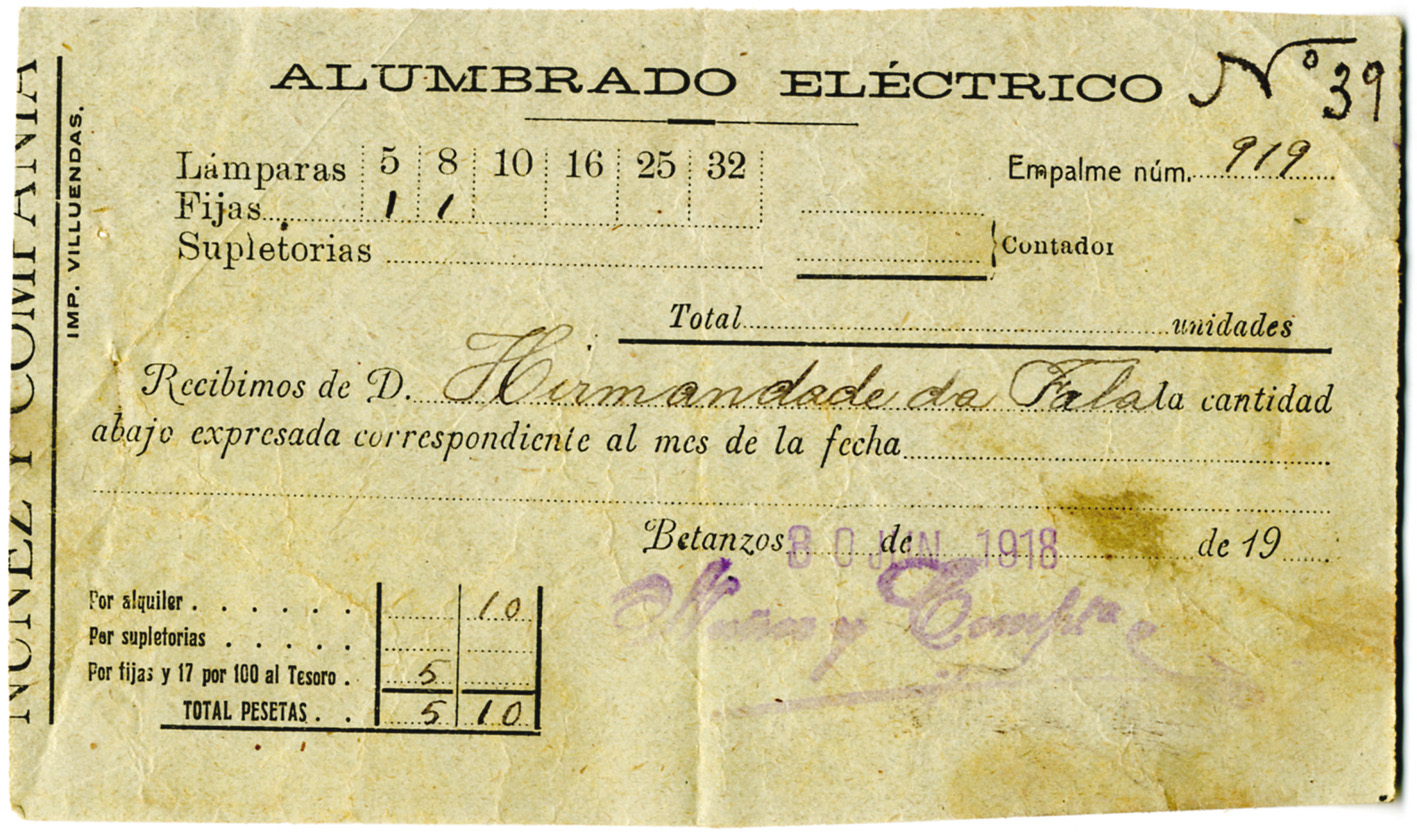 ALUMBRADO ELÉCTRICO Nº 39
Lámparas 5 8 10 16 25 32
Empalme núm. 919
Fijas 1 1
Supletorias
Contador
Total unidades
Recibimos de D. Hirmandade da Fala la cantidad
abajo expresada correspondiente al mes de la fecha
Betanzos de de 19
30 JUN. 1918
Nuñez y Compñía
Por alquiler 10
Por supletorias
Por fijas y 17 por 100 al Tesoro 5
TOTAL PESETAS 5 10
NUÑEZ Y COMPAÑIA
IMP. VILLUENDAS.